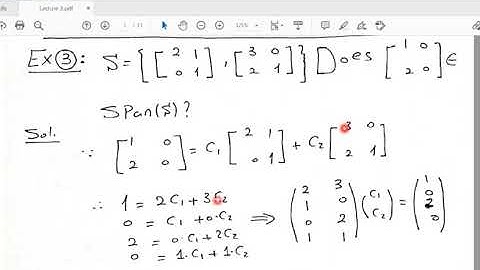 Lecture 3.pdf
EX③: S={[2 1
0 1],[3 0
2 1]} Does [1 0
2 0] ∈
Span(S)?
Sol.
∵ [1 0
2 0] = C₁ [2 1
0 1] + C₂ [3 0
2 1]
∴ 1 = 2C₁+3C₂
0 = C₁+0·C₂
2 = 0·C₁+2C₂
0 = 1·C₁+1·C₂
⟹ (2 3
1 0
0 2
1 1)(C₁
C₂)=(1
0
2
0)